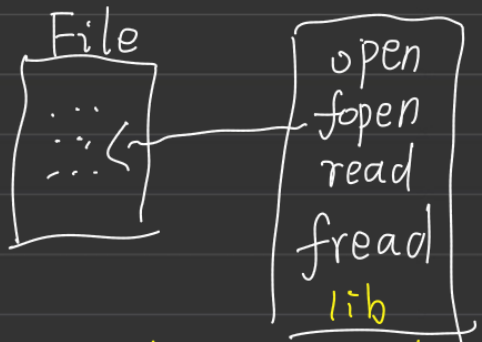 File
open
fopen
read
fread
lib